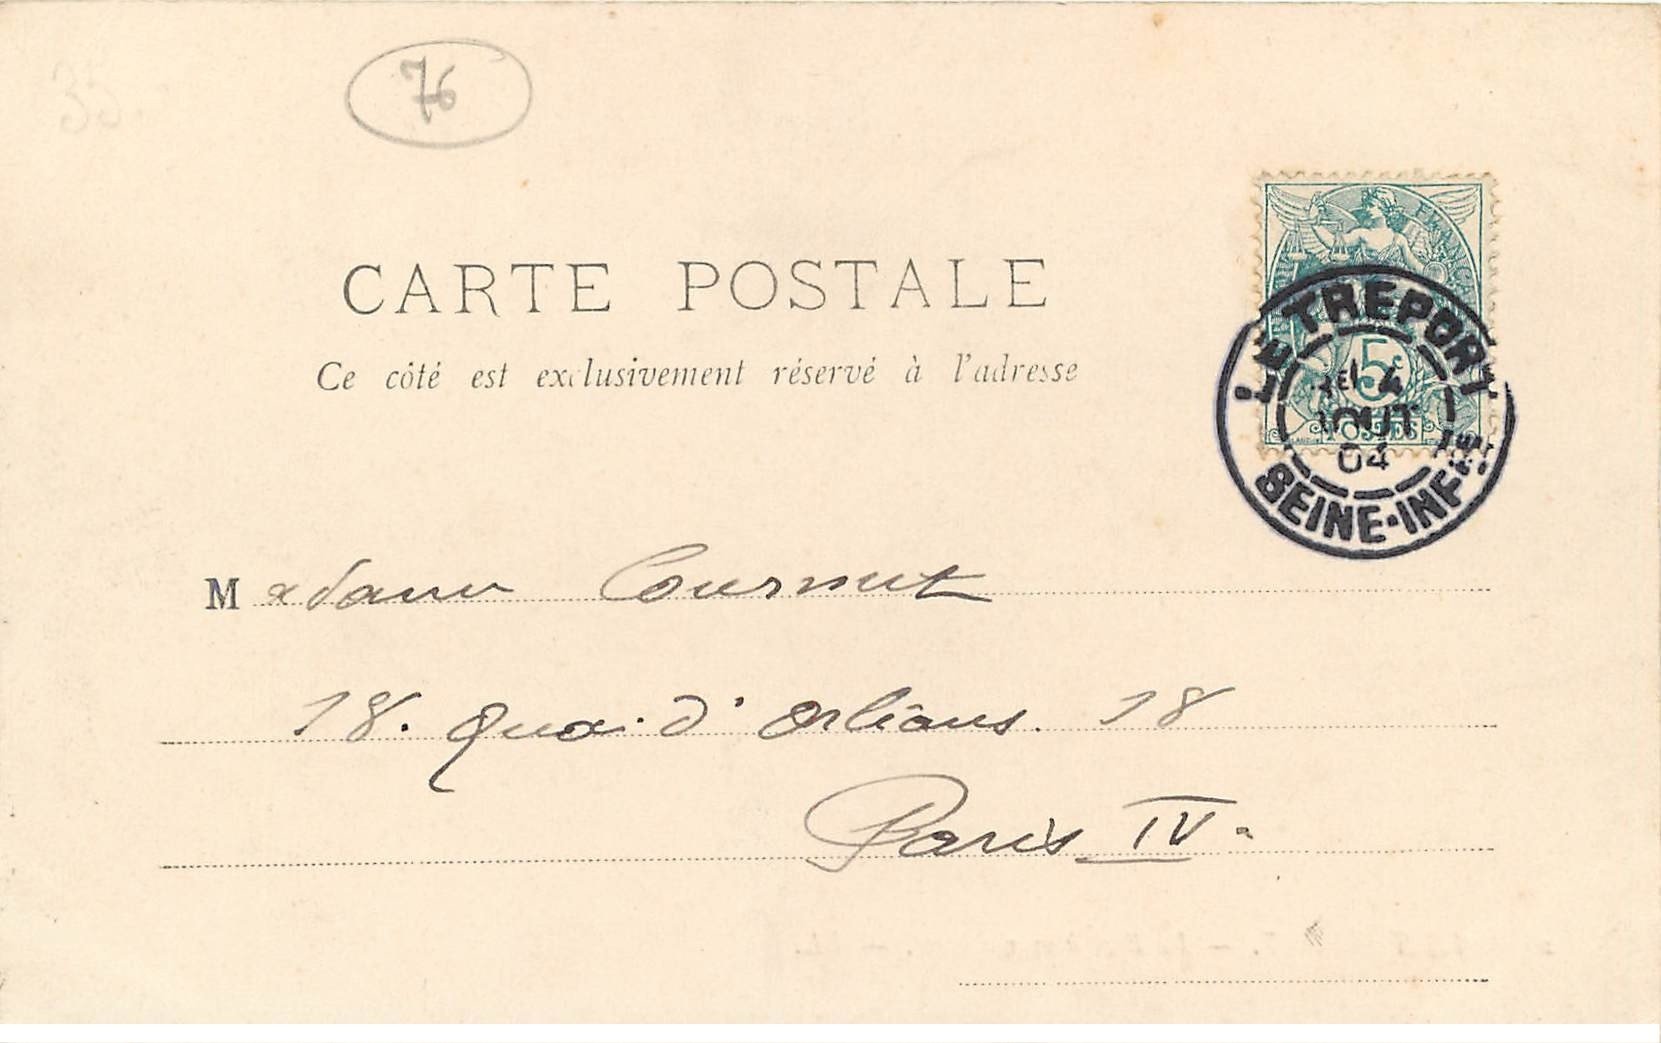 35
76
FRANÇAISE
CARTE POSTALE
Ce côté est exclusivement réservé à l'adresse
LE TREPORT
5c
4
AOUT
POSTES
04
SEINE-INFRE
Madame Cournut
18. Quai d'Orléans. 18
Paris IV.